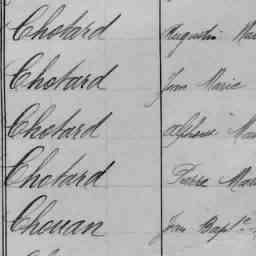 Chotard Augustin
Chotard Jean Marie
Chotard Alphonse
Chotard Pierre
Chouan Jean Bapte